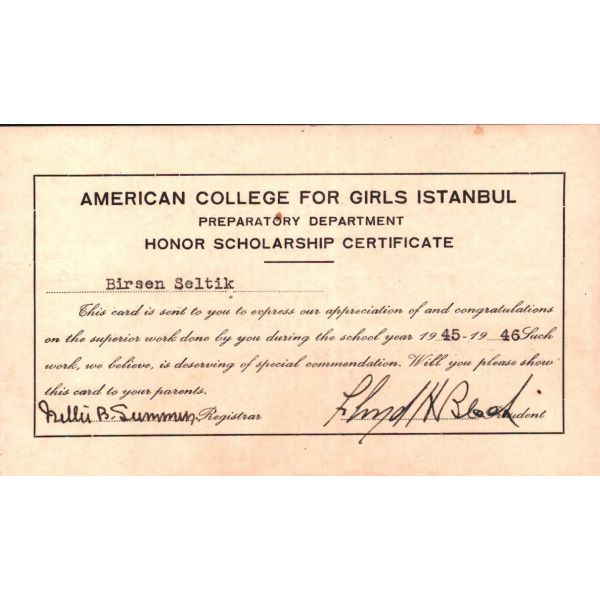 AMERICAN COLLEGE FOR GIRLS ISTANBUL
PREPARATORY DEPARTMENT
HONOR SCHOLARSHIP CERTIFICATE
Birsen Seltik
This card is sent to you to express our appreciation of and congratulations
on the superior work done by you during the school year 1945-1946 Such
work, we believe, is deserving of special commendation. Will you please show
this card to your parents.
Nellie B. Summers, Registrar Floyd H Black President